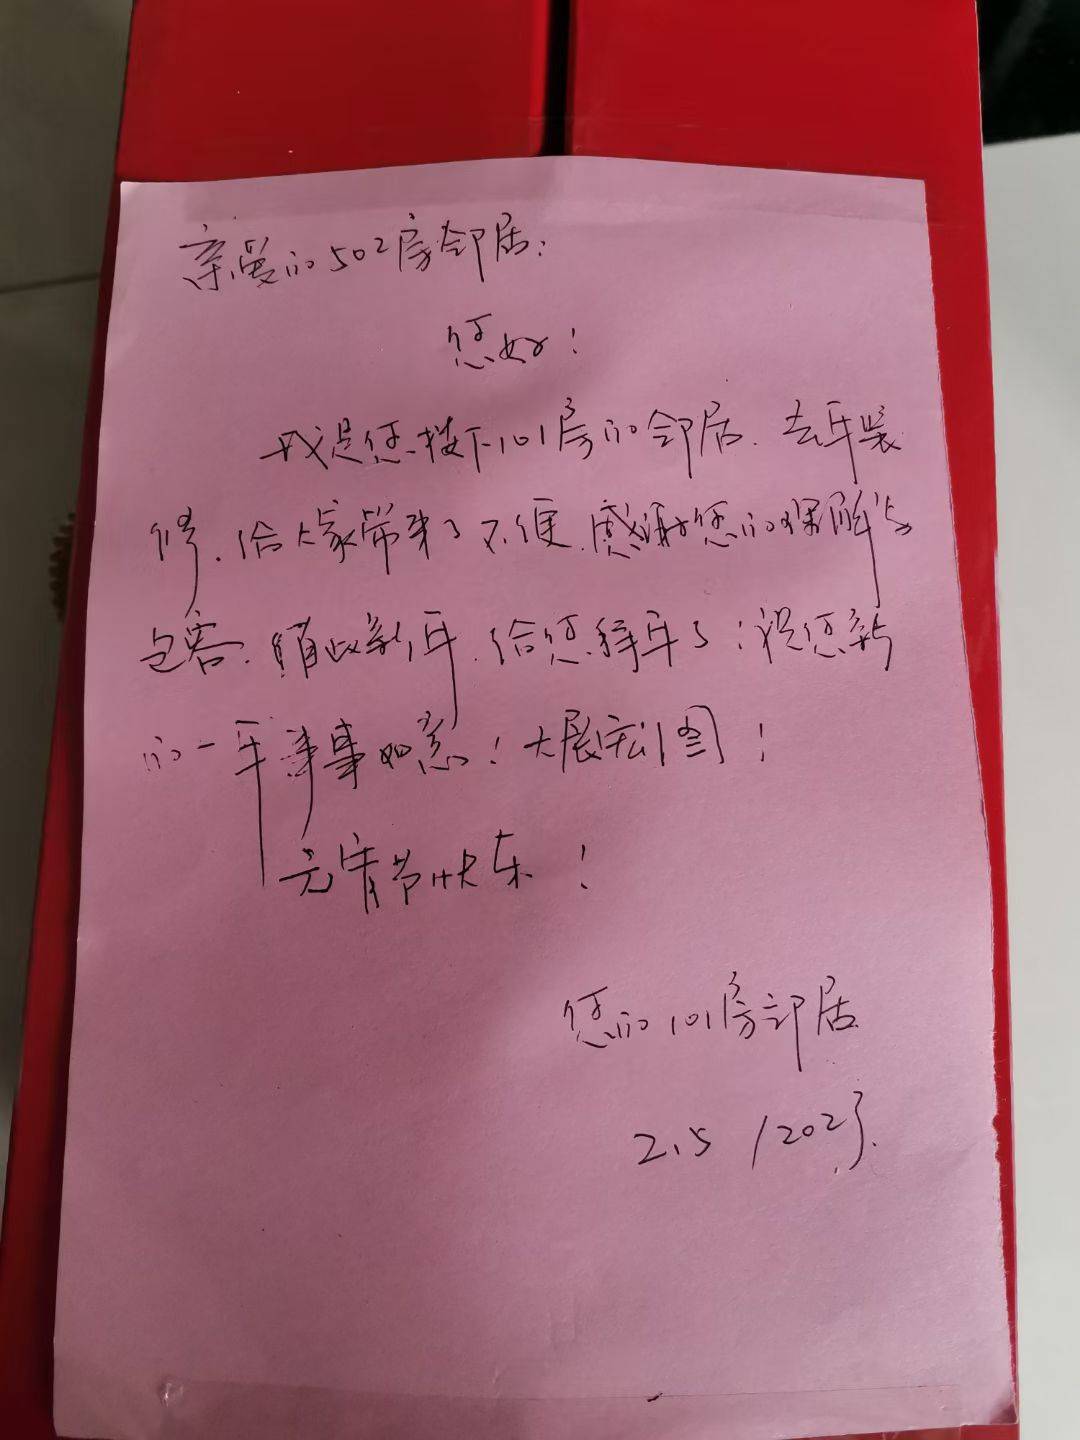 亲爱的502房邻居：
您好！
我是您楼下101房的邻居.去年装
修.给大家带来了不便.感谢您的理解与
包容.值此新年.给您拜年了：祝您新
的一年事事如意！大展宏图！
元宵节快乐！
您的101房邻居
2.5 /2023.